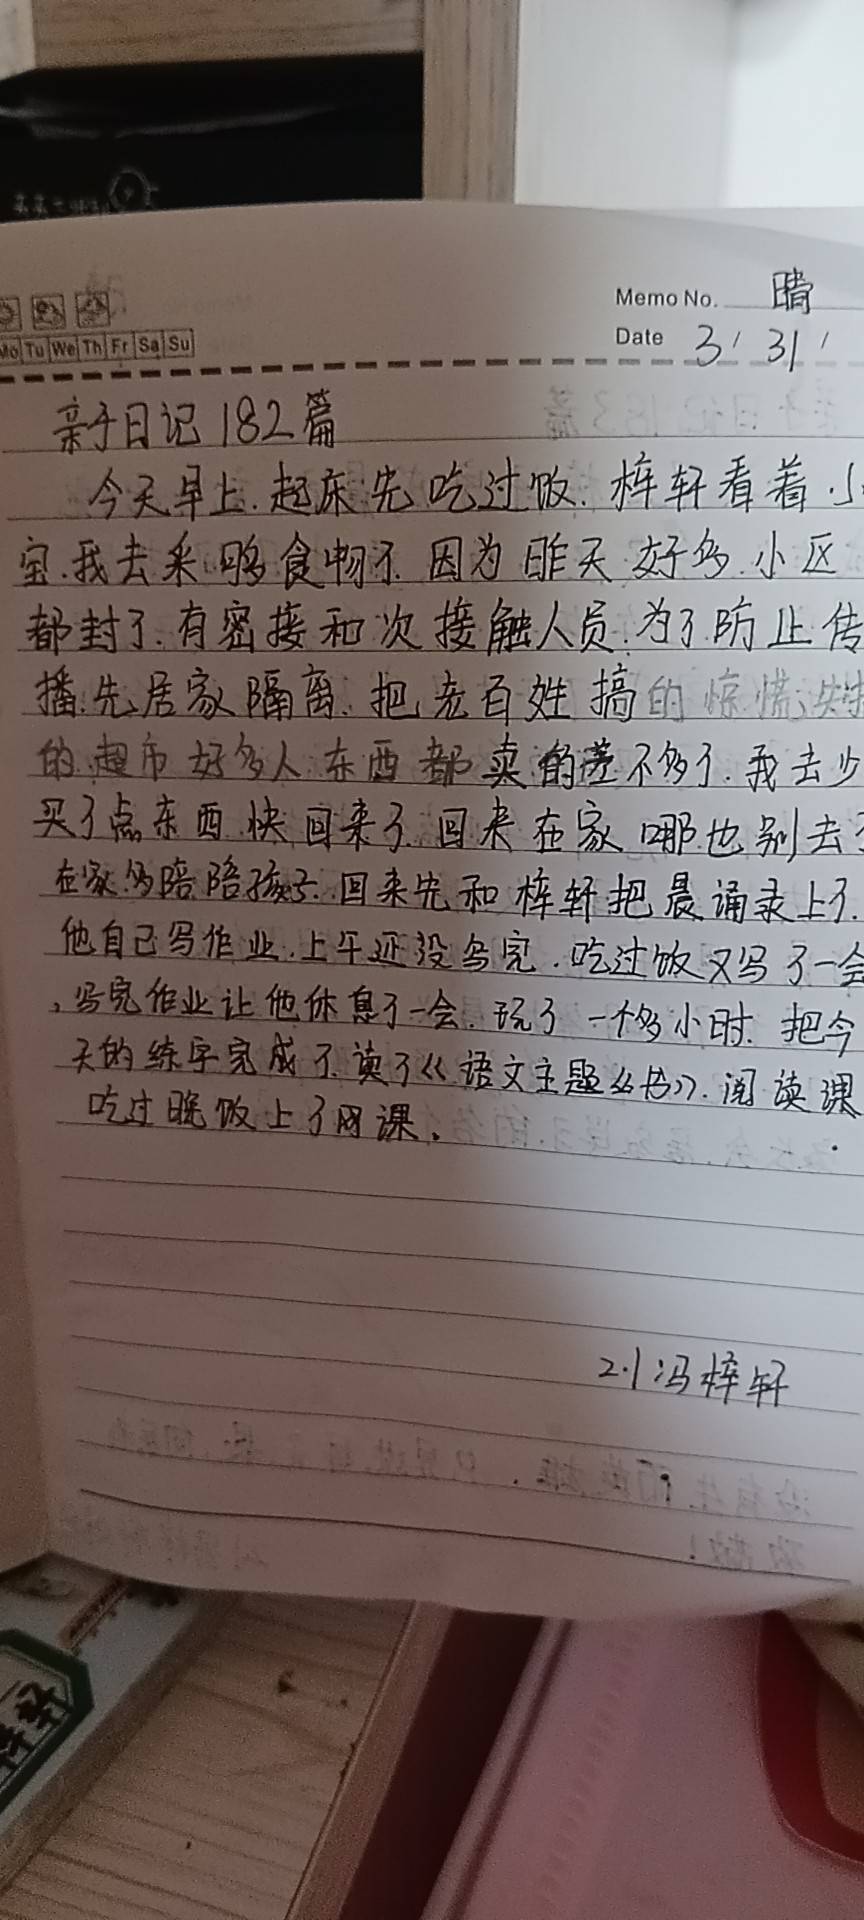 Memo No. 晴
Mo Tu We Th Fr Sa Su
Date 3 / 31 /
亲子日记182篇
今天早上.起床先吃过饭.梓轩看着小
宝.我去采购食物了.因为昨天好多小区
都封了.有密接和次接触人员.为了防止传
播.先居家隔离.把老百姓搞的惊慌失措
的.超市好多人.东西都卖的差不多了.我去少
买了点东西快回来了.回来在家哪也别去了
在家多陪陪孩子.回来先和梓轩把晨诵录上了.
他自己写作业.上午还没写完.吃过饭又写了一会
,写完作业让他休息了一会.玩了一个多小时.把今
天的练字完成了.读了《语文主题丛书》.阅读课
吃过晚饭上了网课.
2.1冯梓轩